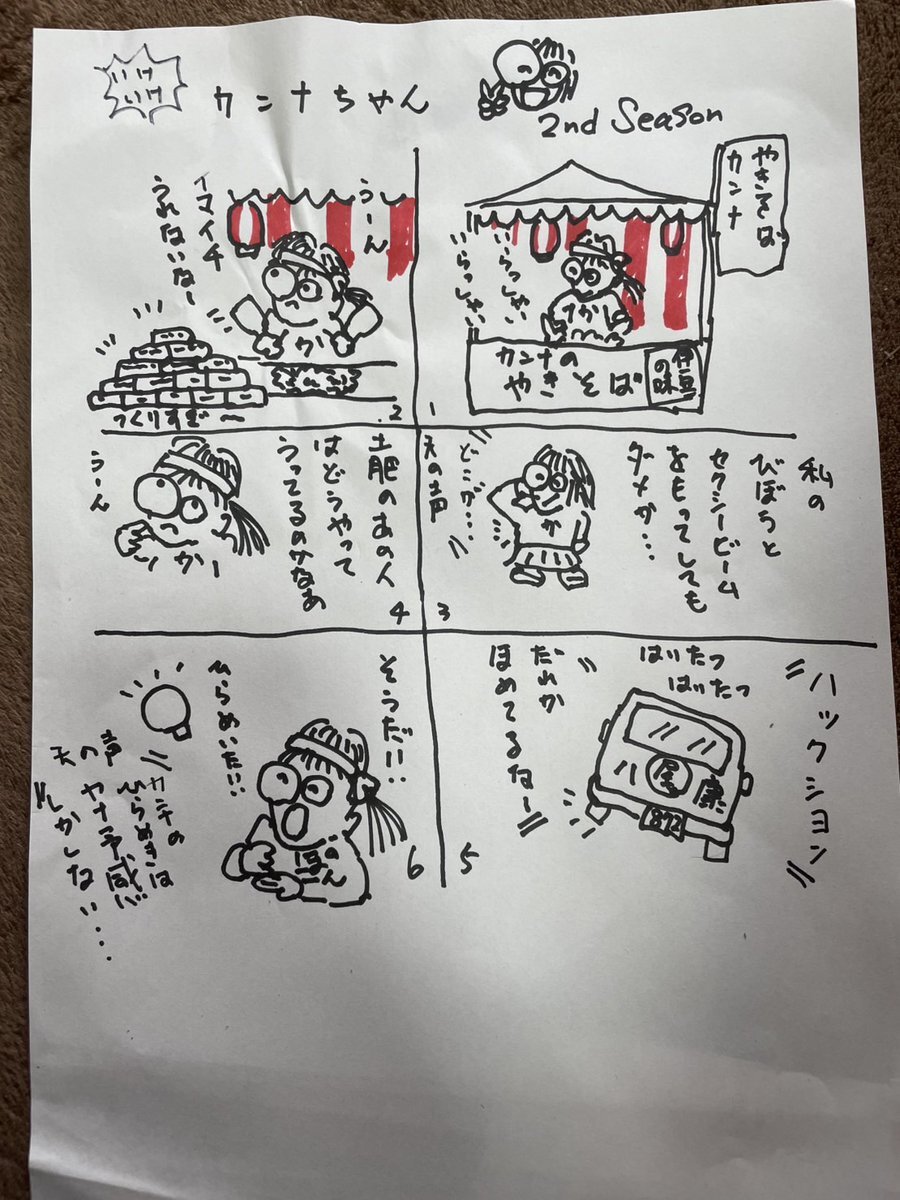 いけ
いけ
カンナちゃん
2nd Season
やきそば
カンナ
いらっしゃい
いらっしゃい
か
カンナの
やきそば
伊豆
の味
1
うーん
イマイチ
うれないなー
か
つくりすぎ〜
2
私の
びぼうと
セクシービーム
をもってしても
ダメか・・・
か
どこが・・・
天の声
3
土肥のあの人
はどうやって
うってるのかなあ
うーん
か
4
ハックション
はいたつ
はいたつ
八尾康
872
だれか
ほめてるなー
5
そうだ!!
ひらめいた!!
カンナの
ひらめきは
ヤナ予感
しかしない・・・
天の声
6